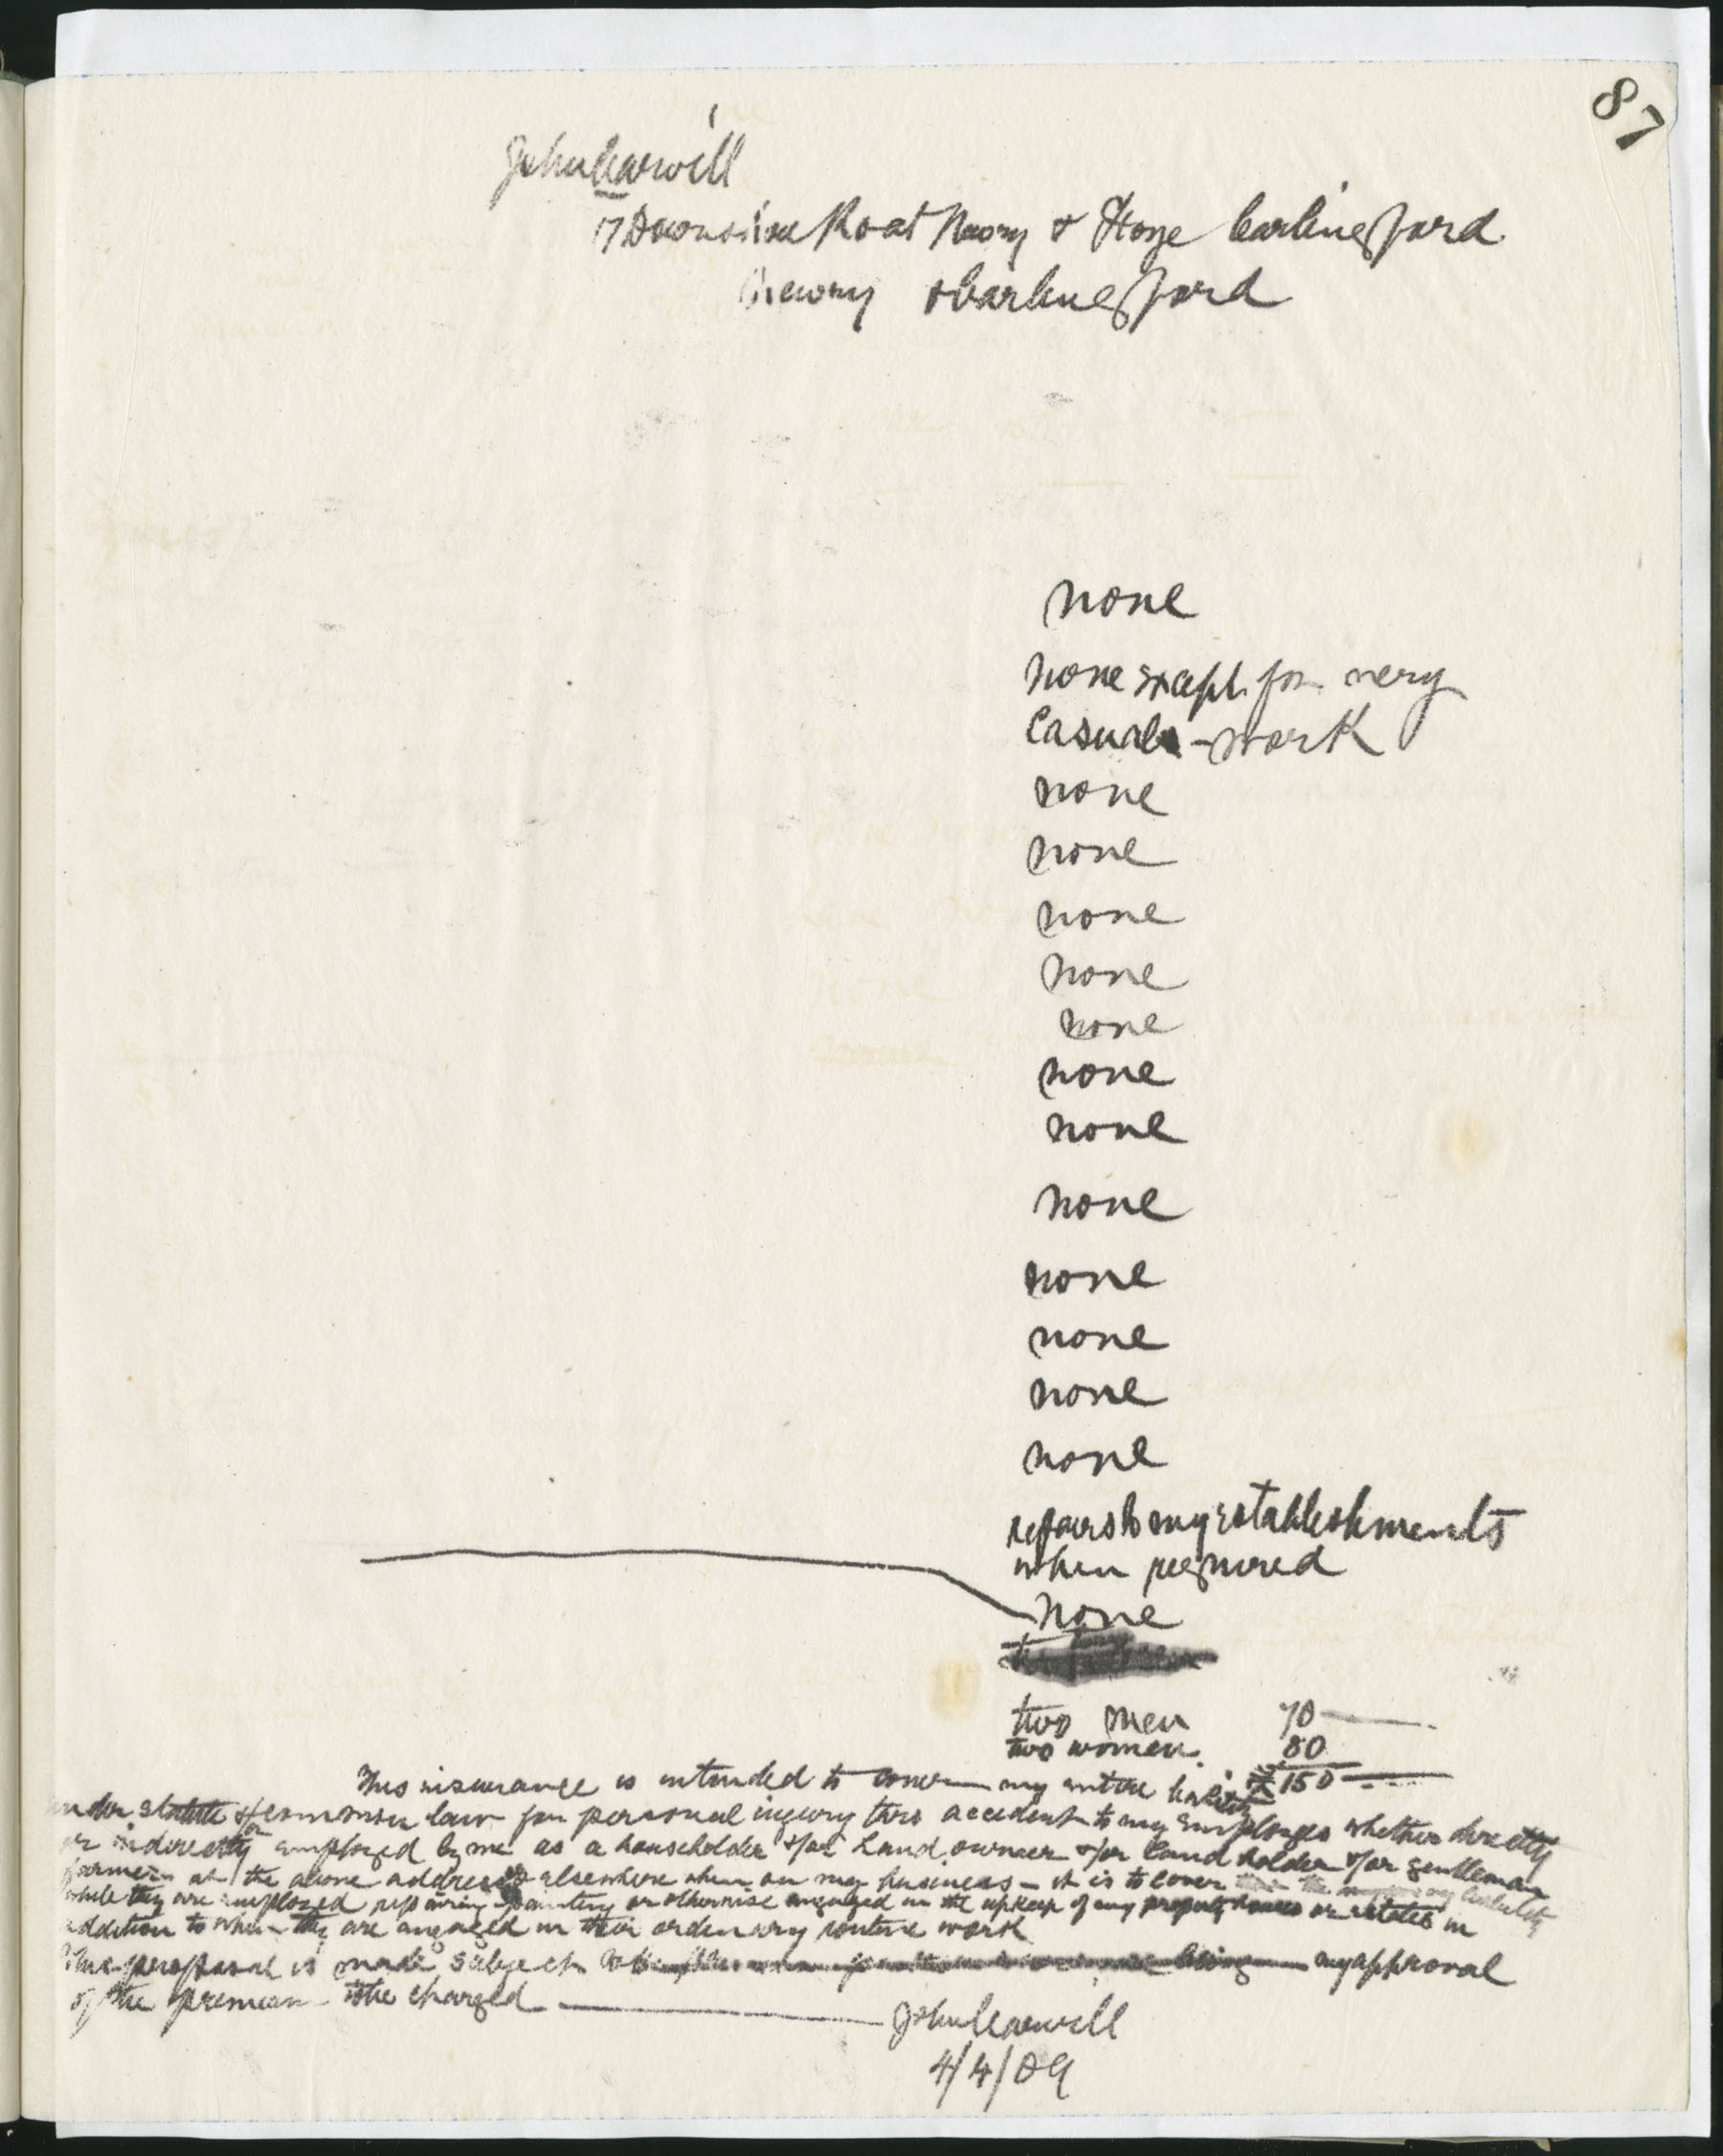 87
John Carvill
17 Downshire Road Newry & Grove Carlingford
Newry & Carlingford
none
none except for very
Casual work
none
none
none
none
none
none
none
none
none
none
none
none
repairs to my establishments
when required
none
two men 70
two women 80
£150
This insurance is intended to cover my entire liability
under statute &/or common law for personal injury thro accident to my employes whether directly
or indirectly employed by me as a householder &/or Land owner &/or land holder &/or gentleman
farmer at the above address or elsewhere when on my business - it is to cover my liability
while they are employed repairing painting or otherwise engaged in the upkeep of any property houses or estates in
addition to when they are engaged in their ordinary routine work
This proposal is made subject to my approval
of the premium to be charged
John Carvill
4/4/09